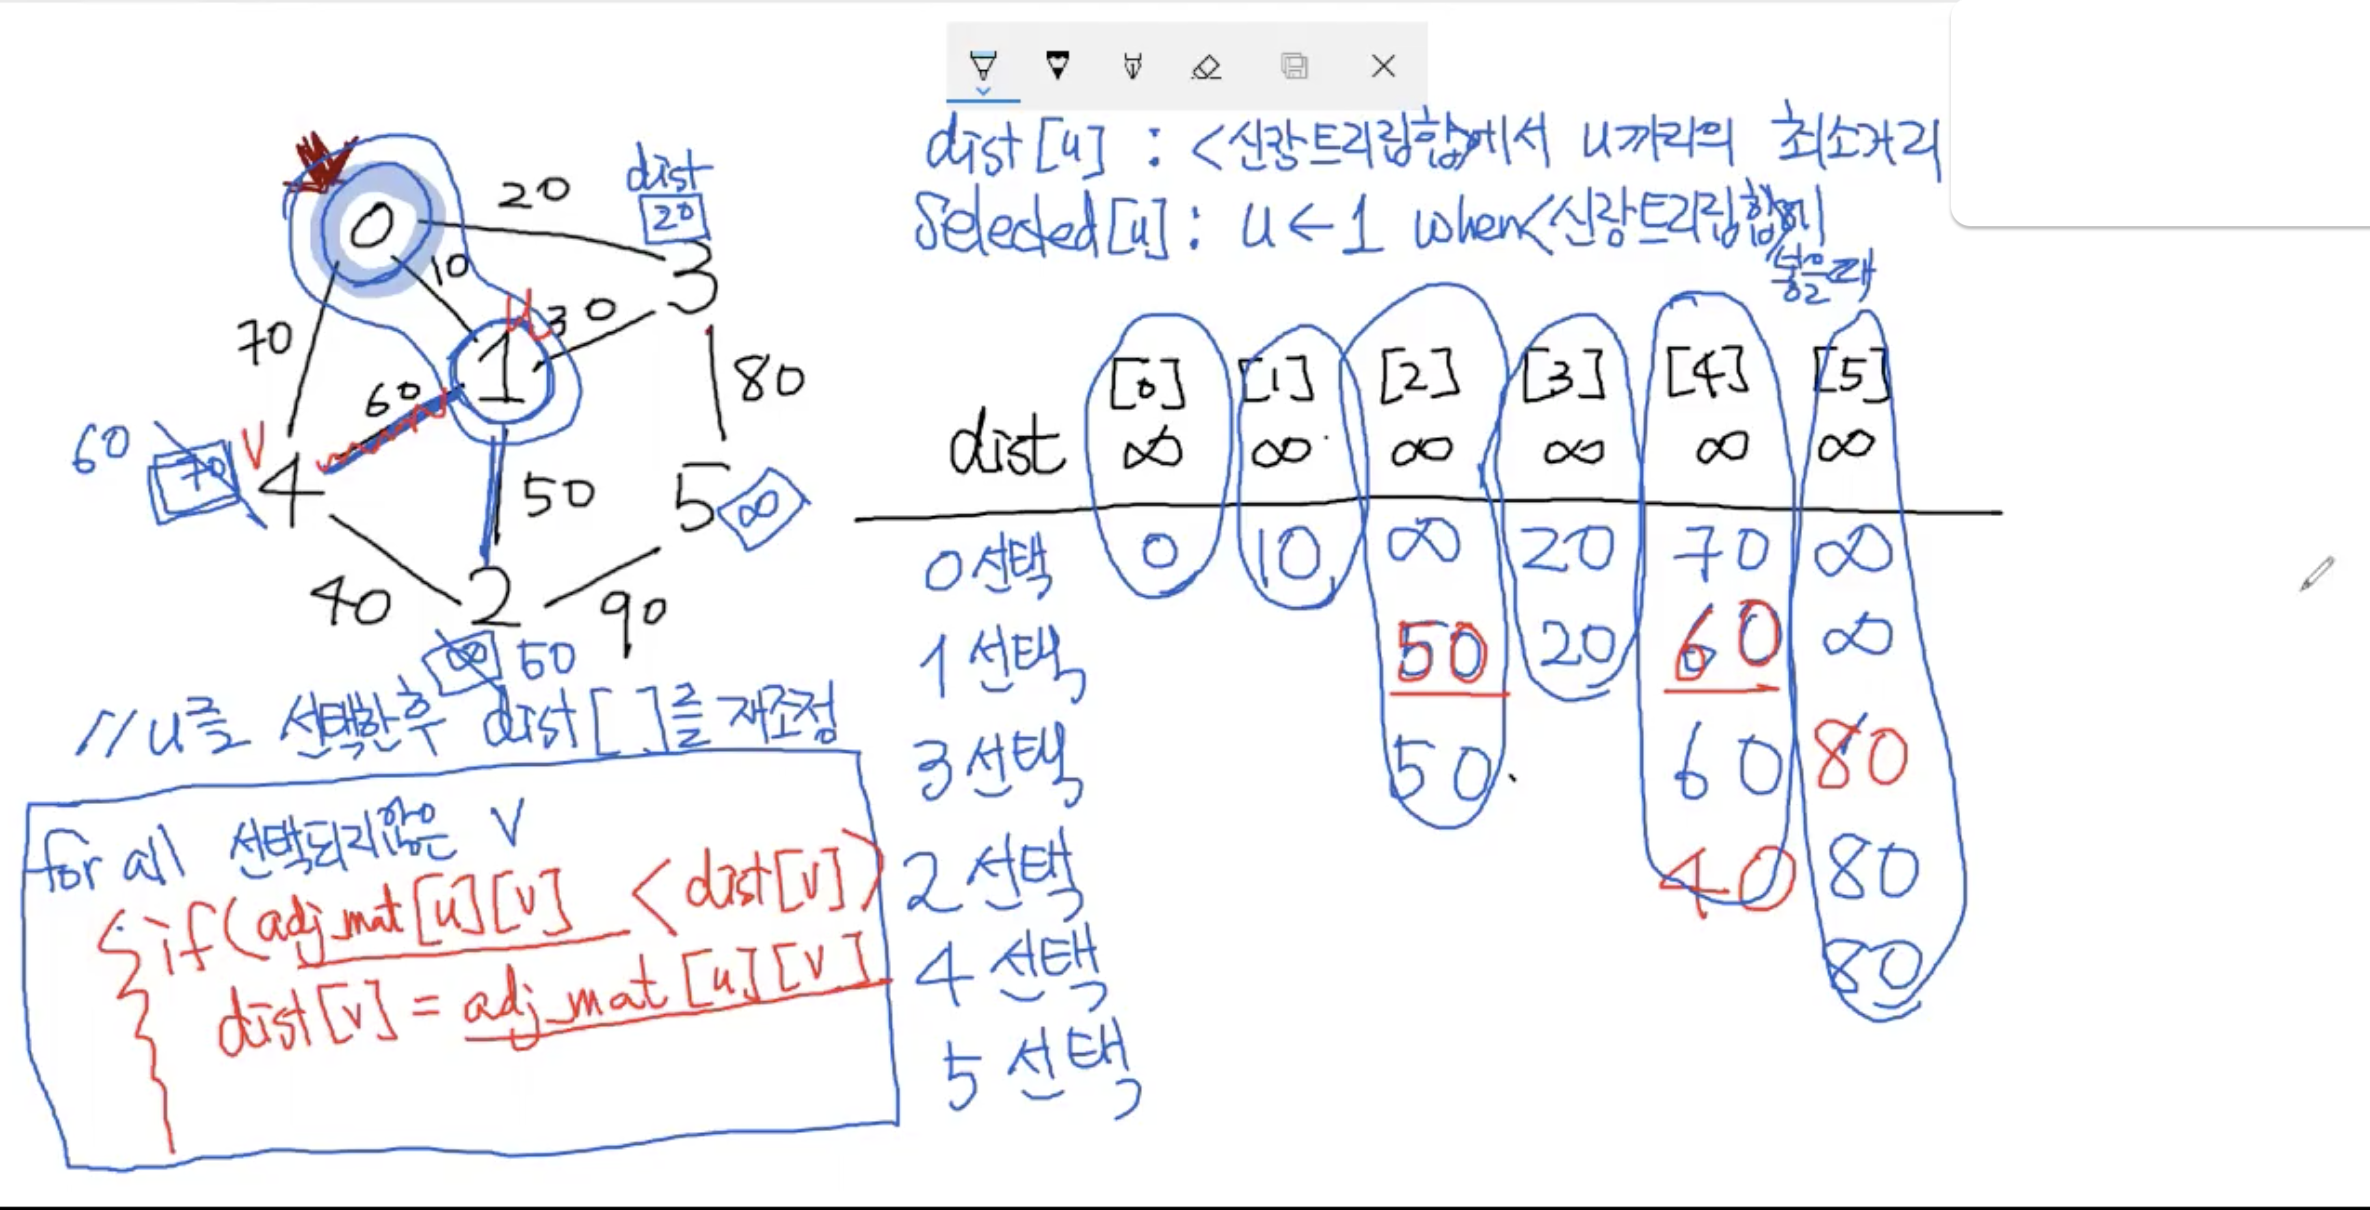 dist[u] : <신장트리집합에서 u까지의 최소거리
Selected[u] : u ← 1 when <신장트리집합에
넣을때
0
20
dist
20
10
3
70
u
30
60
1
80
60
70
V
4
50
5
∞
40
2
90
∞ 50
[0] [1] [2] [3] [4] [5]
dist ∞ ∞ ∞ ∞ ∞ ∞
0선택 0 10 ∞ 20 70 ∞
1선택 50 20 60 ∞
3선택 50 60 80
2선택 40 80
4선택 80
5선택
//u를 선택한후 dist[ ]를 재조정
for all 선택되지않은 V
{ if(adj_mat[u][v] < dist[v])
dist[v] = adj_mat[u][v]